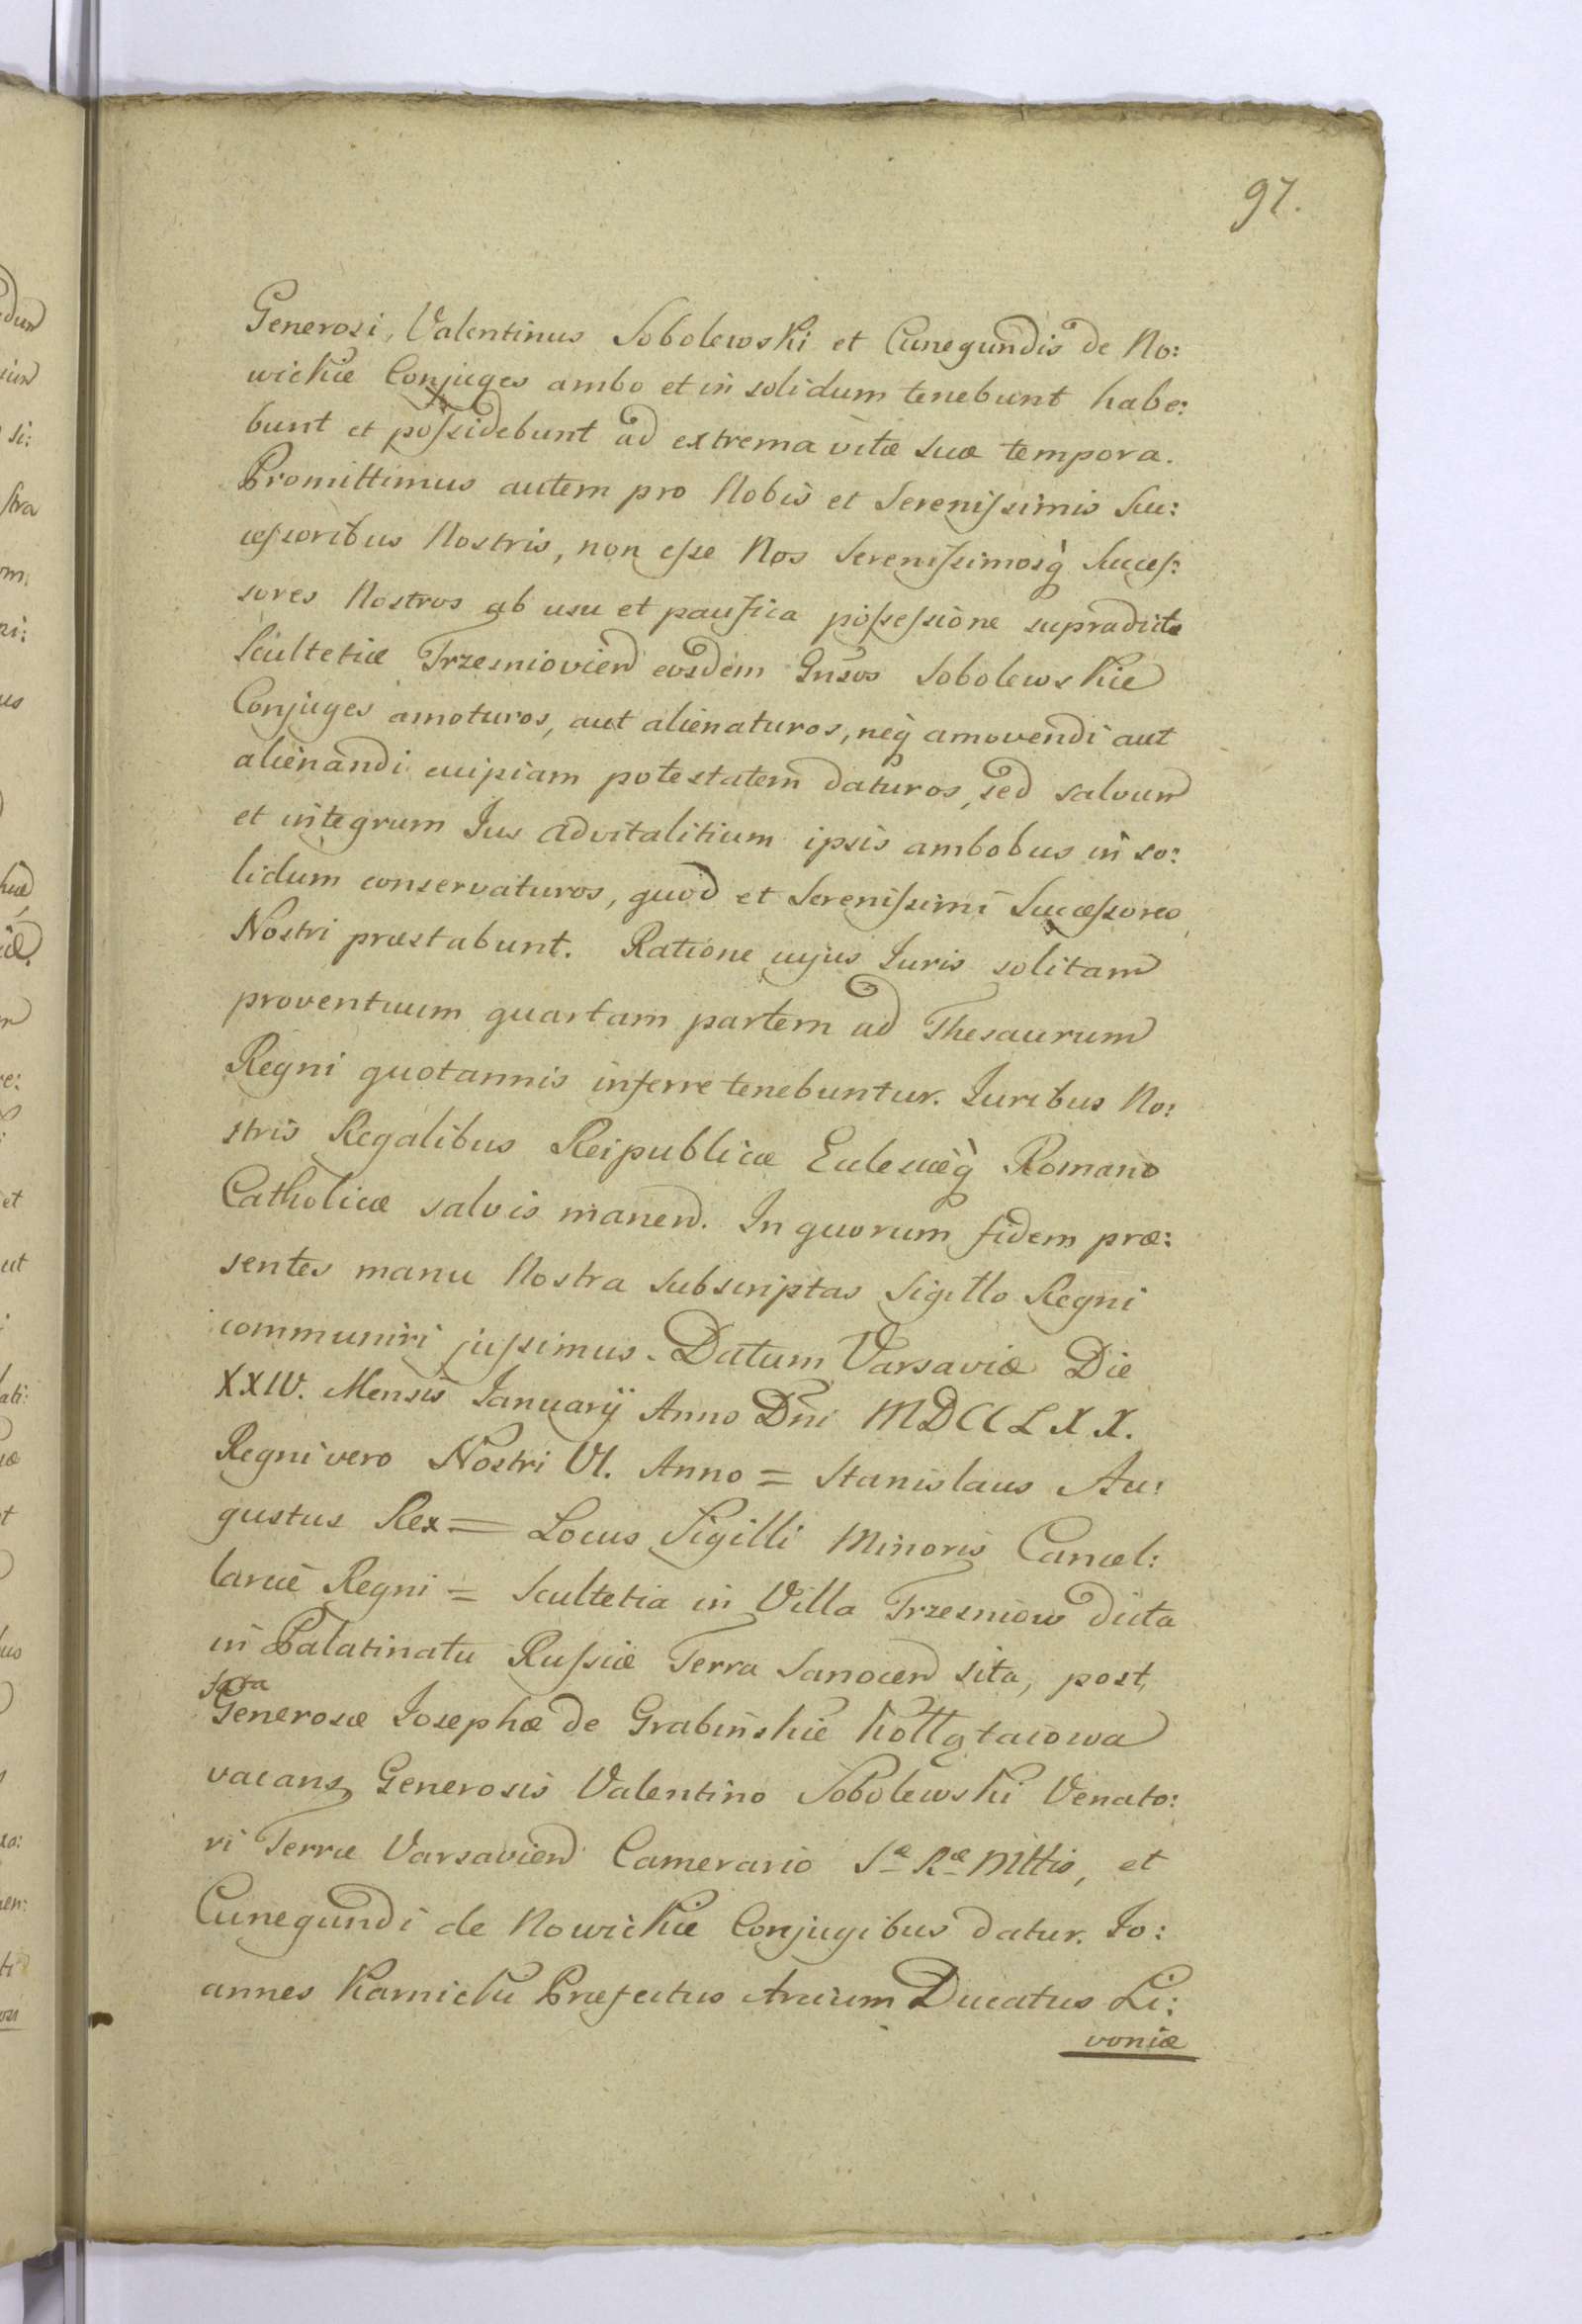 97.
Generosi, Valentinus Sobolewski et Cunegundis de No:
wickie Conjuges ambo et in solidum tenebunt habe:
bunt et poſsidebunt ad extrema vitæ suæ tempora.
Promittimus autem pro Nobis et Sereniſsimis Suc:
ceſsoribus Nostris, non eſse Nos Sereniſsimosq̀ Succeſ:
sores Nostros ab usu et paucifica poſseſsione supradictæ
Scultetiæ Trzesniovien eosdem Gnsos Sobolewskie
Conjuges amoturos, aut alienaturos, neq̀ amovendi aut
alienandi cuipiam potestatem daturos, sed salvum
et integrum Jus advitalitium ipsis ambobus in so:
lidum conservaturos, quod et Sereniſsimi Succeſsores
Nostri præstabunt. Ratione cujus Iuris solitam
proventuum quartam partem ad Thesaurum
Regni quotannis inferre tenebuntur. Iuribus No:
stris Regalibus Reipublicæ Eclesiæq̀ Romano
Catholicæ salvis manen. In quorum fidem præ:
sentes manu Nostra subscriptas Sigillo Regni
communiri juſsimus. Datum Varsaviæ Die
XXIV. Mensis Ianuarÿ Anno Dni MDCCLXX.
Regni vero Nostri VI. Anno = Stanislaus Au:
gustus Rex = Locus Sigilli Minoris Cancel:
lariæ Regni = Scultetia in Villa Trzesniow dicta
in Palatinatu Ruſsiæ Terra Sanocen sita, post
fata
Generosæ Iosephæ de Grabinskie Kołłątaiowa
vacans, Generosis Valentino Sobolewski Venato:
ri Terræ Varsavien Camerario S<sup>æ</sup> R<sup>æ</sup> Mttis, et
Cunegundi de Nowickie Conjugibus datur. Io:
annes Karnicki Præfectus Arcium Ducatus Li:
voniæ